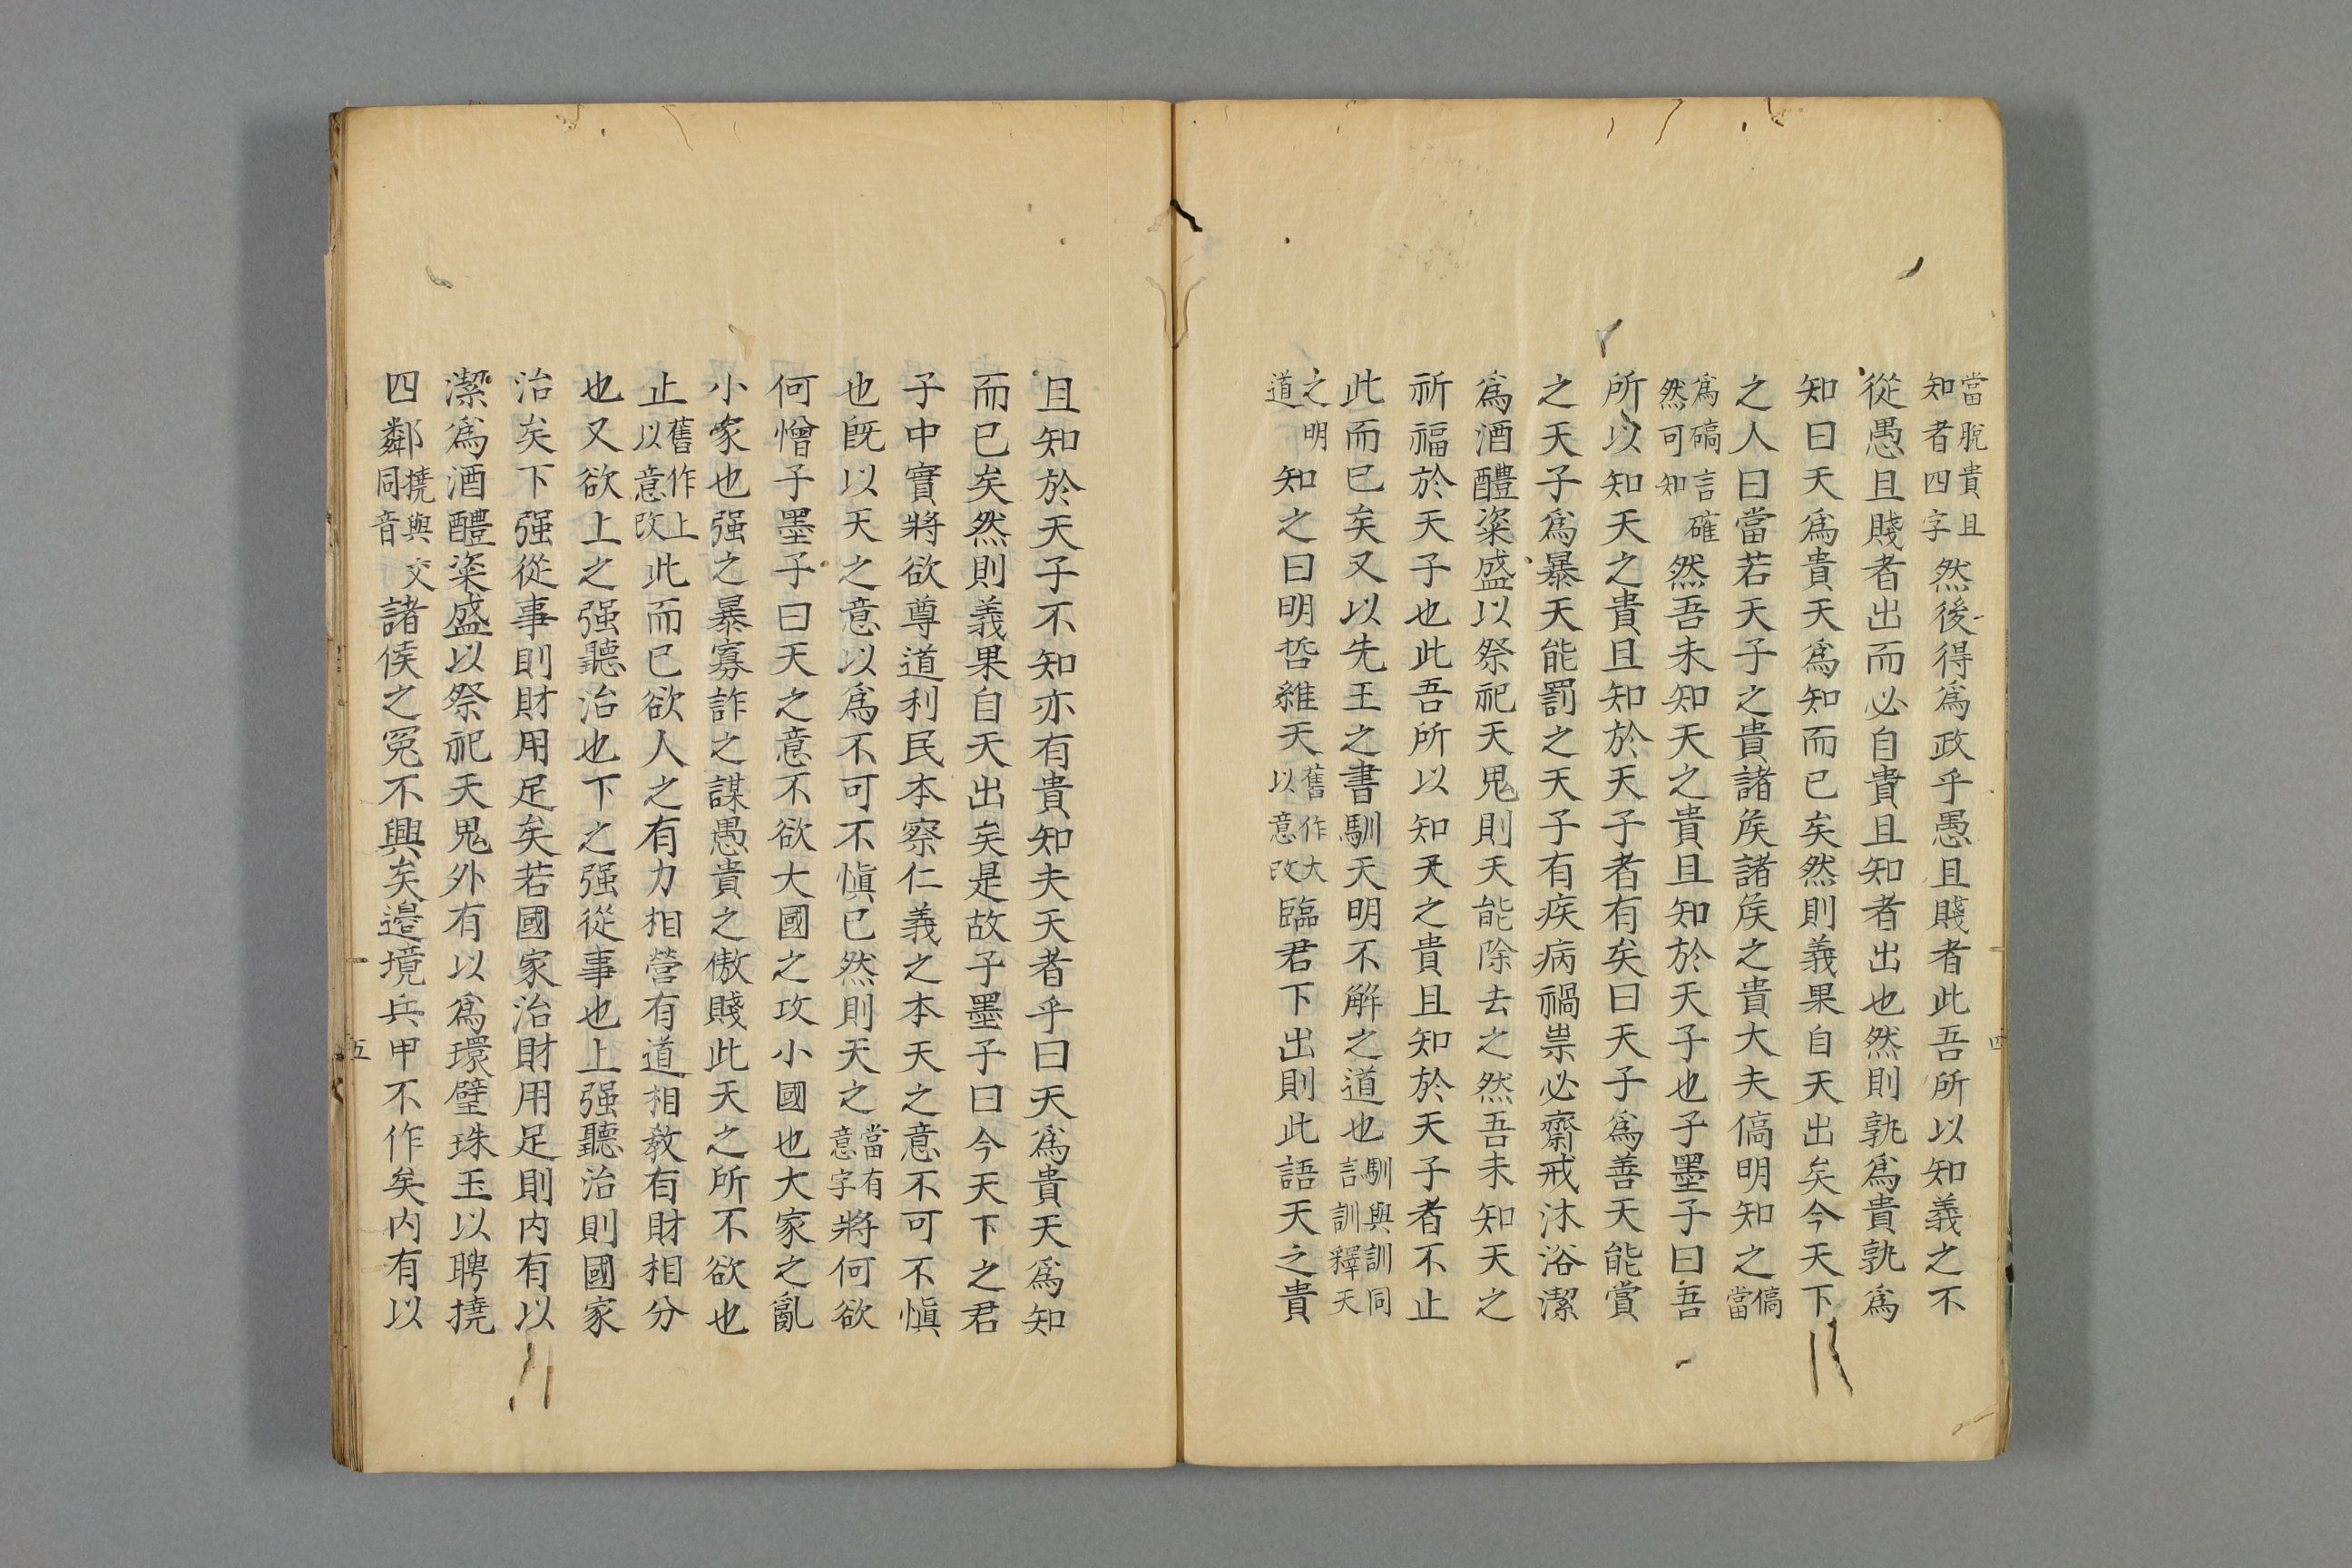 當脫貴且知者四字然後得爲政乎愚且賤者此吾所以知義之不
從愚且賤者出而必自貴且知者出也然則孰爲貴孰爲
知曰天爲貴天爲知而已矣然則義果自天出矣今天下
之人曰當若天子之貴諸矦諸矦之貴大夫傐明知之傐當
爲碻言確然可知然吾未知天之貴且知於天子也子墨子曰吾
所以知天之貴且知於天子者有矣曰天子爲善天能賞
之天子爲暴天能罰之天子有疾病禍祟必齋戒沐浴潔
爲酒醴粢盛以祭祀天鬼則天能除去之然吾未知天之
祈福於天子也此吾所以知天之貴且知於天子者不止
此而已矣又以先王之書馴天明不解之道也馴與訓同言訓釋天
之明道知之曰明哲維天舊作大以意改臨君下出則此語天之貴
且知於天子不知亦有貴知夫天者乎曰天爲貴天爲知
而已矣然則義果自天出矣是故子墨子曰今天下之君
子中實將欲尊道利民本察仁義之本天之意不可不愼
也旣以天之意以爲不可不愼已然則天之當有意字將何欲
何憎子墨子曰天之意不欲大國之攻小國也大家之亂
小家也强之暴寡詐之謀愚貴之傲賤此天之所不欲也
止舊作上以意改此而已欲人之有力相營有道相敎有財相分
也又欲上之强聽治也下之强從事也上强聽治則國家
治矣下强從事則財用足矣若國家治財用足則内有以
潔爲酒醴粢盛以祭祀天鬼外有以爲環璧珠玉以聘撓
四鄰撓與交同音諸侯之冤不興矣邉境兵甲不作矣内有以
四
五